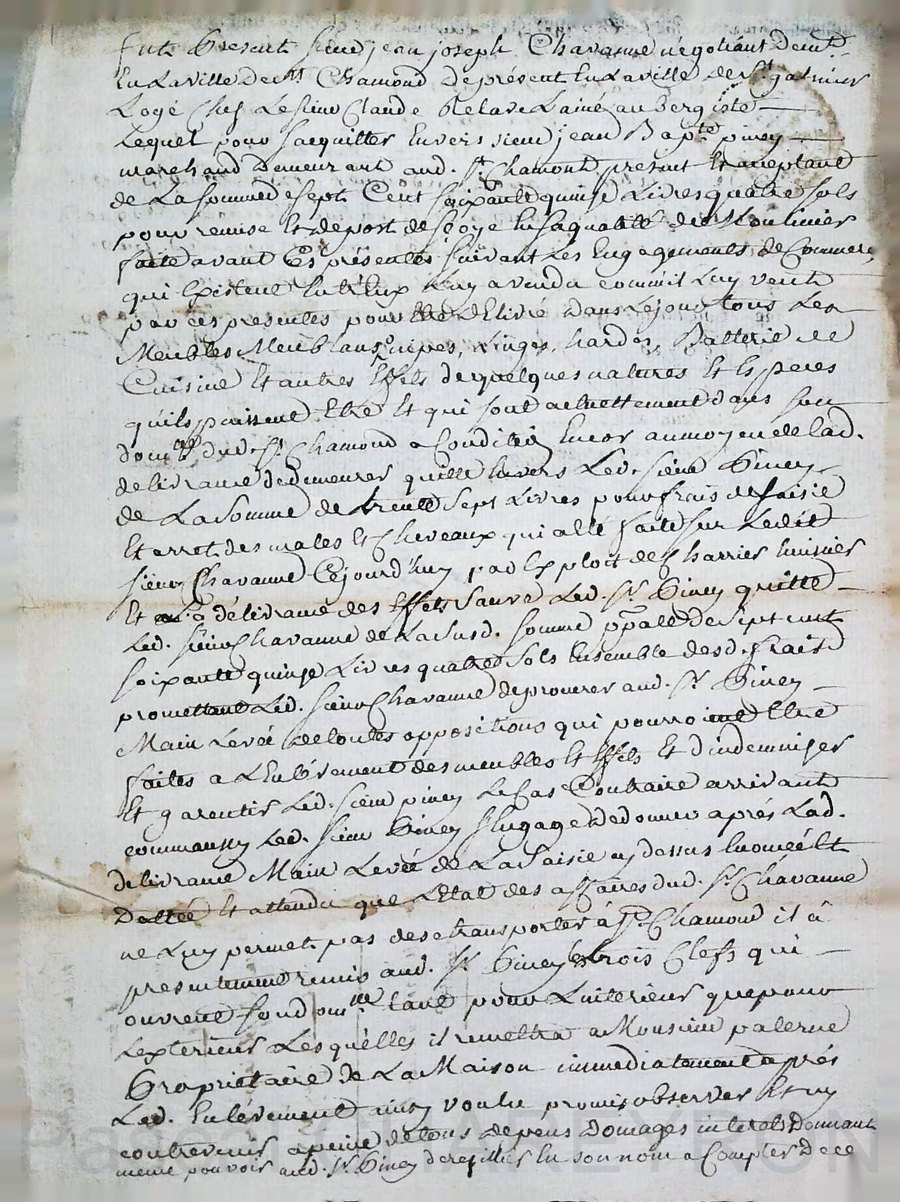 Fut Present sieur jean joseph Chavanne négotiant demt
En La ville de st Chamond de présent En La ville de St galmier
Logé Chez Le sieur Claude Relave L'ainé aubergiste
Lequel pour sacquitter Envers sieur jean Bapte piney
marchand Demeurant aud. St Chamont present Et aceptant
de La somme de sept Cent soixante quinse Livres quatre sols
pour remise Et deport de soye En saqualité de Moulinier
faite avant Ces présentes suivant Les Engagements de Commerce
qui Existent Entr'Eux Luy a vendu comm'il Luy vent
par ces presentes pour Etre délivré Dans Lejour tous Les
Meubles Meublans, nipes, Linges, hardes, Batterie de
Cuisine Et autres Effets de quelques natures Et Especes
qu'ils puissent Etre Et qui sont actuellement dans son
domlle dud. St Chamond a Condition Encor au moyen de lad.
delivrance de demeurer quitte Envers Led. sieur Piney
de La Somme de trente Sept Livres pour frais de saisie
Et arret des males Et Chevaux qui a Eté faite sur Ledit
sieur Chavanne Cejourd'huy par Exploit de Charrier huissier
Et délivrance des Effets Sauve Led. Sr Piney quitte
Led. sieur Chavanne de La susd. somme ppalle de sept cent
soixante quinze Livres quatre sols Ensemble desd. frais
promettant Led. sieur Chavanne de procurer aud. Sr Piney
Main Levée de toutes oppositions qui pourroient Etre
faites a L'Enlévement des meubles Et Effets Et d'indemniser
Et garentir Led. sieur piney Le Cas Contraire arrivant
comm'aussy Led. sieur Piney s'Engage de donner aprés Lad.
delivrance Main Levée de La saisie cy dessus Enoncée Et
Dattée Et attendu que L'Etat des affaires dud. Sr Chavanne
ne Luy permet pas de se transporter à St Chamond il à
presentement remis aud. Sr Piney trois Clefs qui
ouvrent son domlle tant pour L'interieur que pour
L'exterieur Lesquélles il remettra a Monsieur palerne
Propriétaire de La Maison immediatement aprés
Led. Enlévement ainsy voulu promis observer Et ny
contrevenir a peine de tous depens Domages interets Donnant
meme pouvoir aud. Sr Piney de resillier En son nom a Compter de ce